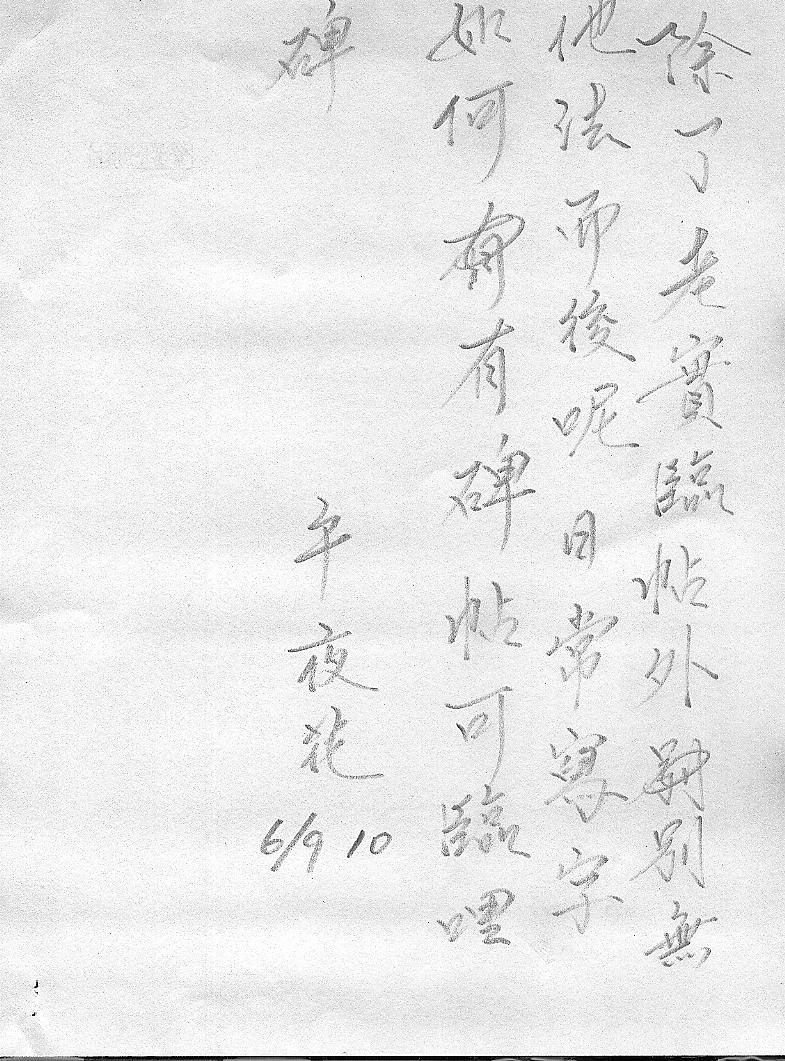 除了老實臨帖外別無
他法而後呢日常寫字
如何有碑帖可臨哩
碑
午夜花
6/9 10